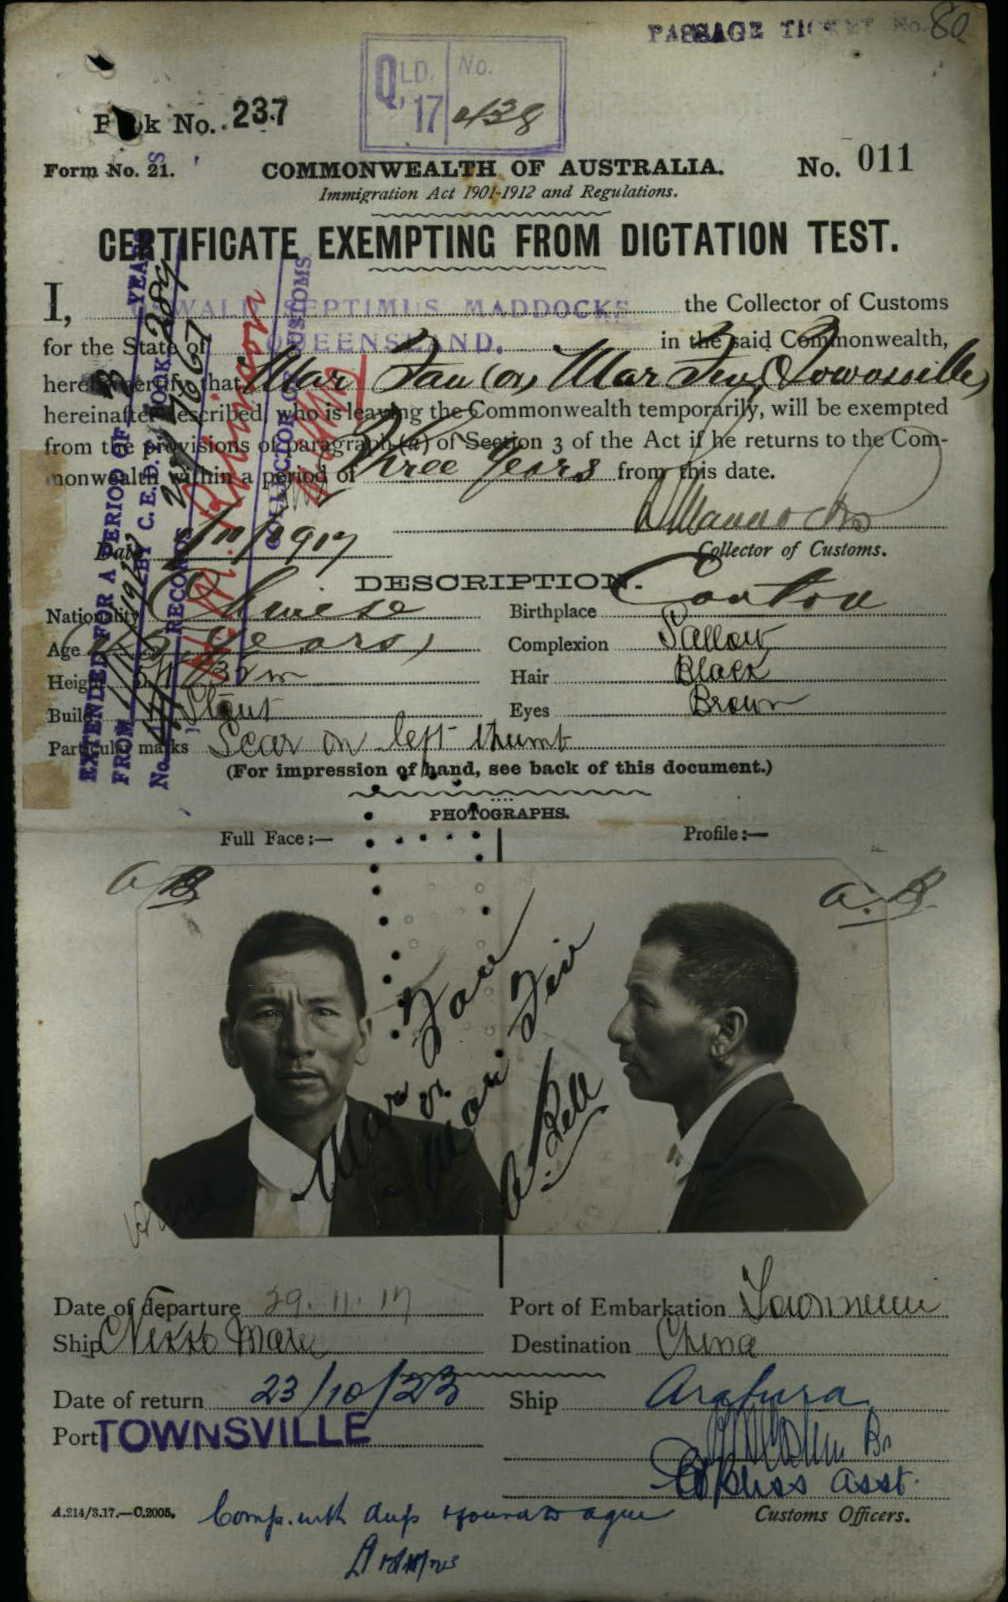 PASSAGE TICKET No. 80
QLD. No.
17 438
Book No. 237
Form No. 21. COMMONWEALTH OF AUSTRALIA. No. 011
Immigration Act 1901-1912 and Regulations.
CERTIFICATE EXEMPTING FROM DICTATION TEST.
I, OSWALD SEPTIMUS MADDOCKS the Collector of Customs
for the State of QUEENSLAND. in the said Commonwealth,
hereby certify that Mar Fau (or) Mar Few, Townsville,
hereinafter described, who is leaving the Commonwealth temporarily, will be exempted
from the provisions of paragraph (a) of Section 3 of the Act if he returns to the Com-
monwealth within a period of Three Years from this date.
Date 1/11/1917
Collector of Customs.
EXTENDED FOR A PERIOD OF 3 YEARS
FROM
BY C. E. D. BOOK
No. RECORDS
COLLECTOR OF CUSTOMS.
DESCRIPTION.
Nationality Chinese Birthplace Canton
Age 45 years Complexion Sallow
Height Hair Black
Build Stout Eyes Brown
Particular marks Scar on left thumb
(For impression of hand, see back of this document.)
PHOTOGRAPHS.
Full Face:— Profile:—
A B
A. B.
Mar Fau
or
Mar Few
A. Bell
Date of departure 29.11.17 Port of Embarkation Townsville
Ship Nikko Maru Destination China
Date of return 23/10/23 Ship Arafura
Port TOWNSVILLE
asst.
A.214/3.17.—C.2005. Comp. with dup & found to agree Customs Officers.